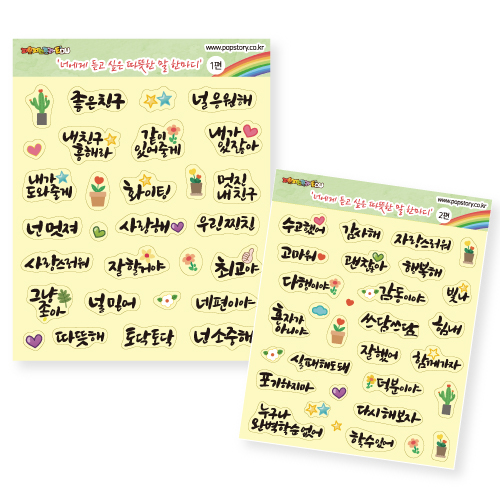 www.popstory.co.kr
'너에게 듣고 싶은 따뜻한 말 한마디' 1편
좋은친구
널응원해
내친구
흥해라
같이
있어줄게
내가
있잖아
내가
도와줄게
화이팅
멋진
내친구
너먼저
사랑해
우린찍친
사랑스러워
잘할거야
최고야
그냥
좋아
널믿어
네편이야
따뜻해
토닥토닥
넌소중해
www.popstory.co.kr
'너에게 듣고 싶은 따뜻한 말 한마디' 2편
수고했어
감사해
자랑스러워
고마워
괜찮아
행복해
다행이야
감동이야
빛나
혼자가
아니야
쓰담쓰담
힘내
실패해도돼
잘했어
함께가자
포기하지마
덕분이야
다시해보자
누구나
완벽할순없어
할수있어